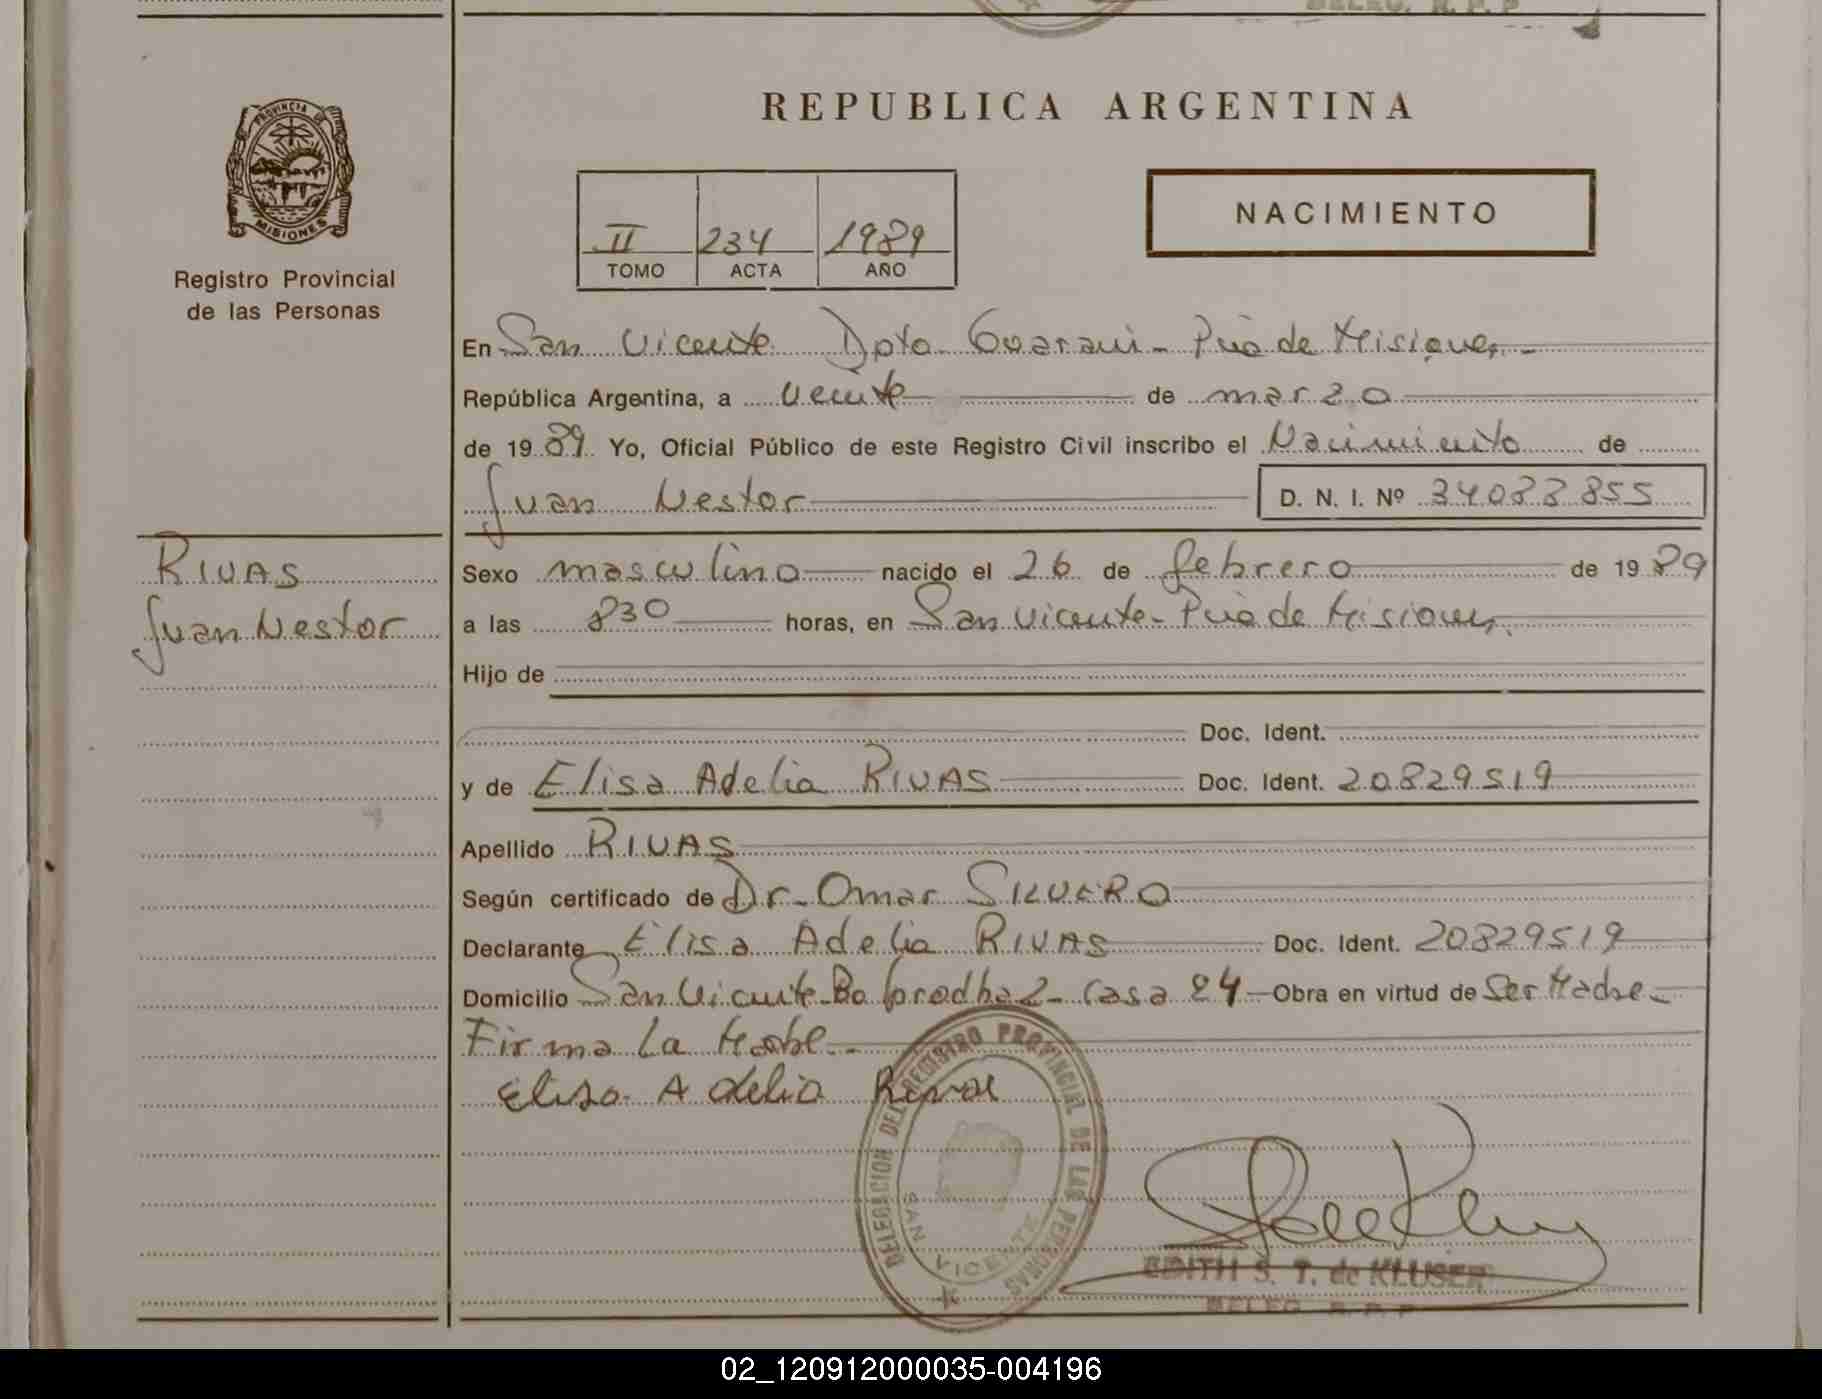 DELEG. R. P. P
REPUBLICA ARGENTINA
PROVINCIA DE
MISIONES
Registro Provincial
de las Personas
NACIMIENTO
II 234 1989
TOMO ACTA AÑO
En San Vicente Dpto Guarani - Pcia de Misiones -
República Argentina, a veinte de marzo
de 1989 Yo, Oficial Público de este Registro Civil inscribo el Nacimiento de
Juan Nestor D. N. I. Nº 34033855
RIVAS
Juan Nestor
Sexo masculino nacido el 26 de febrero de 1989
a las 830 horas, en San Vicente - Pcia de Misiones.
Hijo de
Doc. Ident.
y de Elisa Adelia RIVAS Doc. Ident. 20829519
Apellido RIVAS
Según certificado de Dr. Omar SILVERO
Declarante Elisa Adelia RIVAS Doc. Ident. 20829519
Domicilio San Vicente - Bo - Casa 24 - Obra en virtud de Ser Madre -
Firma La Madre -
Elisa Adelia Rivas
DELEGACION DEL REGISTRO PROVINCIAL DE LAS PERSONAS
SAN VICENTE
EDITH S. T. de KLUSER
DELEG. R. P. P
02_120912000035-004196